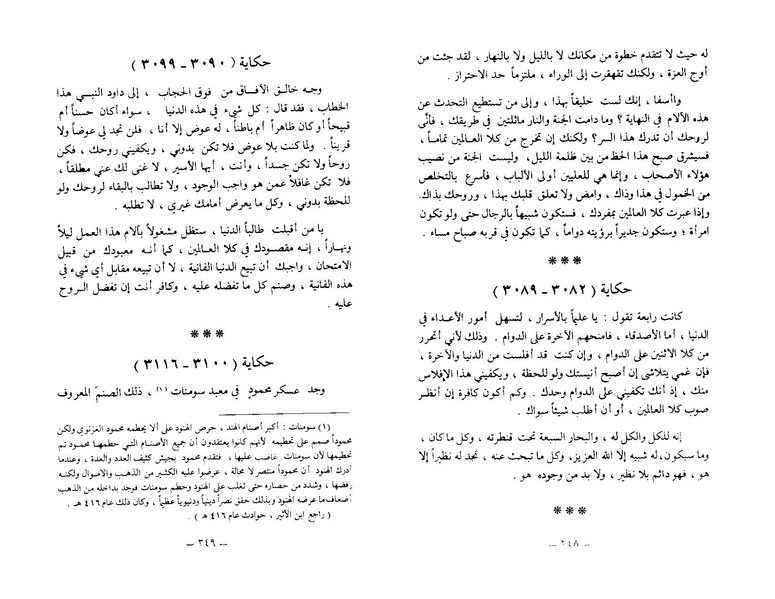 له حيث لا تتقدم خطوة من مكانك لا بالليل ولا بالنهار ، لقد جئت من
أوج العزة ، ولكنك تقهقرت إلى الوراء ، ملتزماً حد الاحتراز .
وأأسفا ، إنك لست خليقاً بهذا ، وإلى من تستطيع التحدث عن
هذه الآلام في النهاية ؟ وما دامت الجنة والنار ماثلتين في طريقك ، فأنَّى
لروحك أن تدرك هذا السر؟ ولكنك إن تخرج من كلا العالمين تماماً ،
فسيشرق صبح هذا الحظ من بين ظلمة الليل، وليست الجنة من نصيب
هؤلاء الأصحاب ، وإنما هي للعليين أولى الألباب ، فأسرع بالتخلص
من الخمول في هذا وذاك ، وامض ولا تعلق قلبك بهذا ، وروحك بذاك.
وإذا عبرت كلا العالمين بمفردك ، فستكون شبيهاً بالرجال حتى ولو تكون
امرأة ؛ وستكون جديراً برؤيته دواماً ، كما تكون في قربه صباح مساء .
***
حكاية ( ٣٠٨٢ - ٣٠٨٩ )
كانت رابعة تقول : يا عليماً بالأسرار ، لتسهل أمور الأعداء في
الدنيا ، أما الأصدقاء ، فامنحهم الآخرة على الدوام . وذلك لأني أتحرر
من كلا الاثنين على الدوام ، وإن كنت قد أفلست من الدنيا والآخرة ،
فإن غمي يتلاشى إن أصبح أنيستك ولو للحظة ، ويكفيني هذا الإفلاس
منك ، إذ أنك تكفيني على الدوام وحدك . وكم أكون كافرة إن أنظر
صوب كلا العالمين ، أو أن أطلب شيئاً سواك .
إنه للكل والكل له ، والبحار السبعة تحت قنطرته ، وكل ما كان ،
وما سيكون، له شبيه إلا الله العزيز، وكل ما تبحث عنه ، تجد له نظيراً إلا
هو ، فهو دائم بلا نظير ، ولا بد من وجوده هو .
***
– ٣٤٨ –
حكاية ( ٣٠٩٠ - ٣٠٩٩ )
وجه خالق الآفاق من فوق الحجاب ، إلى داود النبي هذا
الخطاب ، فقد قال : كل شيء في هذه الدنيا ، سواء أكان حسناً أم
قبيحاً أو كان ظاهراً أم باطناً ، له عوض إلا أنا ، فلن تجد لي عوضاً ولا
قريناً . ولما كنت بلا عوض فلا تكن بدوني ، ويكفيني روحك ، فكن
روحاً ولا تكن جسداً ، وأنت ، أيها الأسير ، لا غنى لك عني مطلقاً ،
فلا تكن غافلاً عمن هو واجب الوجود ، ولا تطالب بالبقاء لروحك ولو
للحظة بدوني ، وكل ما يعرض أمامك غيري ، لا تطلبه .
يا من أقبلت طالباً الدنيا ، ستظل مشغولاً بآلام هذا العمل ليلاً
ونهاراً ، إنه مقصودك في كلا العالمين ، كما أنه معبودك من قبيل
الامتحان ، واجبك أن تبيع الدنيا الفانية ، لا أن تبيعه مقابل أي شيء في
هذه الفانية ، وصنم كل ما تفضله عليه ، وكافر أنت إن تفضل الروح
عليه .
***
حكاية ( ٣١٠٠ - ٣١١٦ )
وجد عسكر محمود في معبد سومنات (١) ، ذلك الصنم المعروف
(١) سومنات : أكبر أصنام الهند ، حرص الهنود على ألا يحطمه محمود الغزنوي ولكن
محموداً صمم على تحطيمه لأنهم كانوا يعتقدون أن جميع الأصنام التي حطمها محمود تم
تحطيمها لأن سومنات غاضب عليها ، فتقدم محمود بجيش كثيف العدد والعدة ، وعندما
أدرك الهنود أن محموداً منتصر لا محالة ، عرضوا عليه الكثير من الذهب والأموال ولكنه
رفضها ، وشدد من حصاره حتى تغلب على الهنود وحطم سومنات فوجد بداخله من الذهب
أضعاف ما عرضه الهنود وبذلك حقق نصراً دينياً ودنيوياً عظيماً ، وكان ذلك عام ٤١٦ هـ .
( راجع ابن الأثير ، حوادث عام ٤١٦ هـ ) .
– ٣٤٩ –